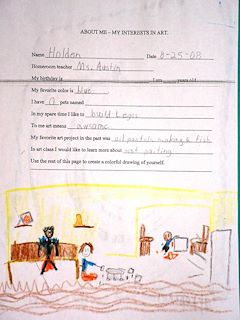 ABOUT ME – MY INTERESTS IN ART.
Name Holden Date 8-25-08
Homeroom teacher Ms. Austin
My birthday is I am years old
My favorite color is blue
I have 0 pets named
In my spare time I like to build Legos
To me art means awsome
My favorite art project in the past was oil pastels making a fish
In art class I would like to learn more about painting
Use the rest of this page to create a colorful drawing of yourself.